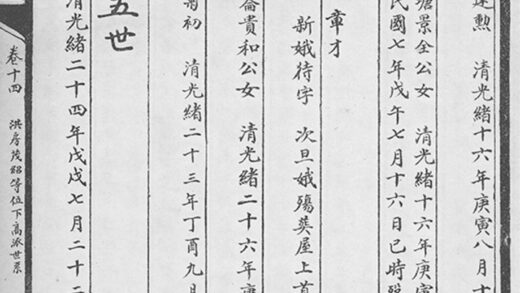 勳 清光緒十六年庚寅八月十
塘景全公女 清光緒十六年庚寅
民國七年戊午七月十六日巳時歿
章才
新娥待字 次旦娥殤葬屋上首
貴和公女 清光緒二十六年庚
初 清光緒二十三年丁酉九月
五世
清光緒二十四年戊戌七月二十二
卷十四 洪房茂紹等位下高派世系